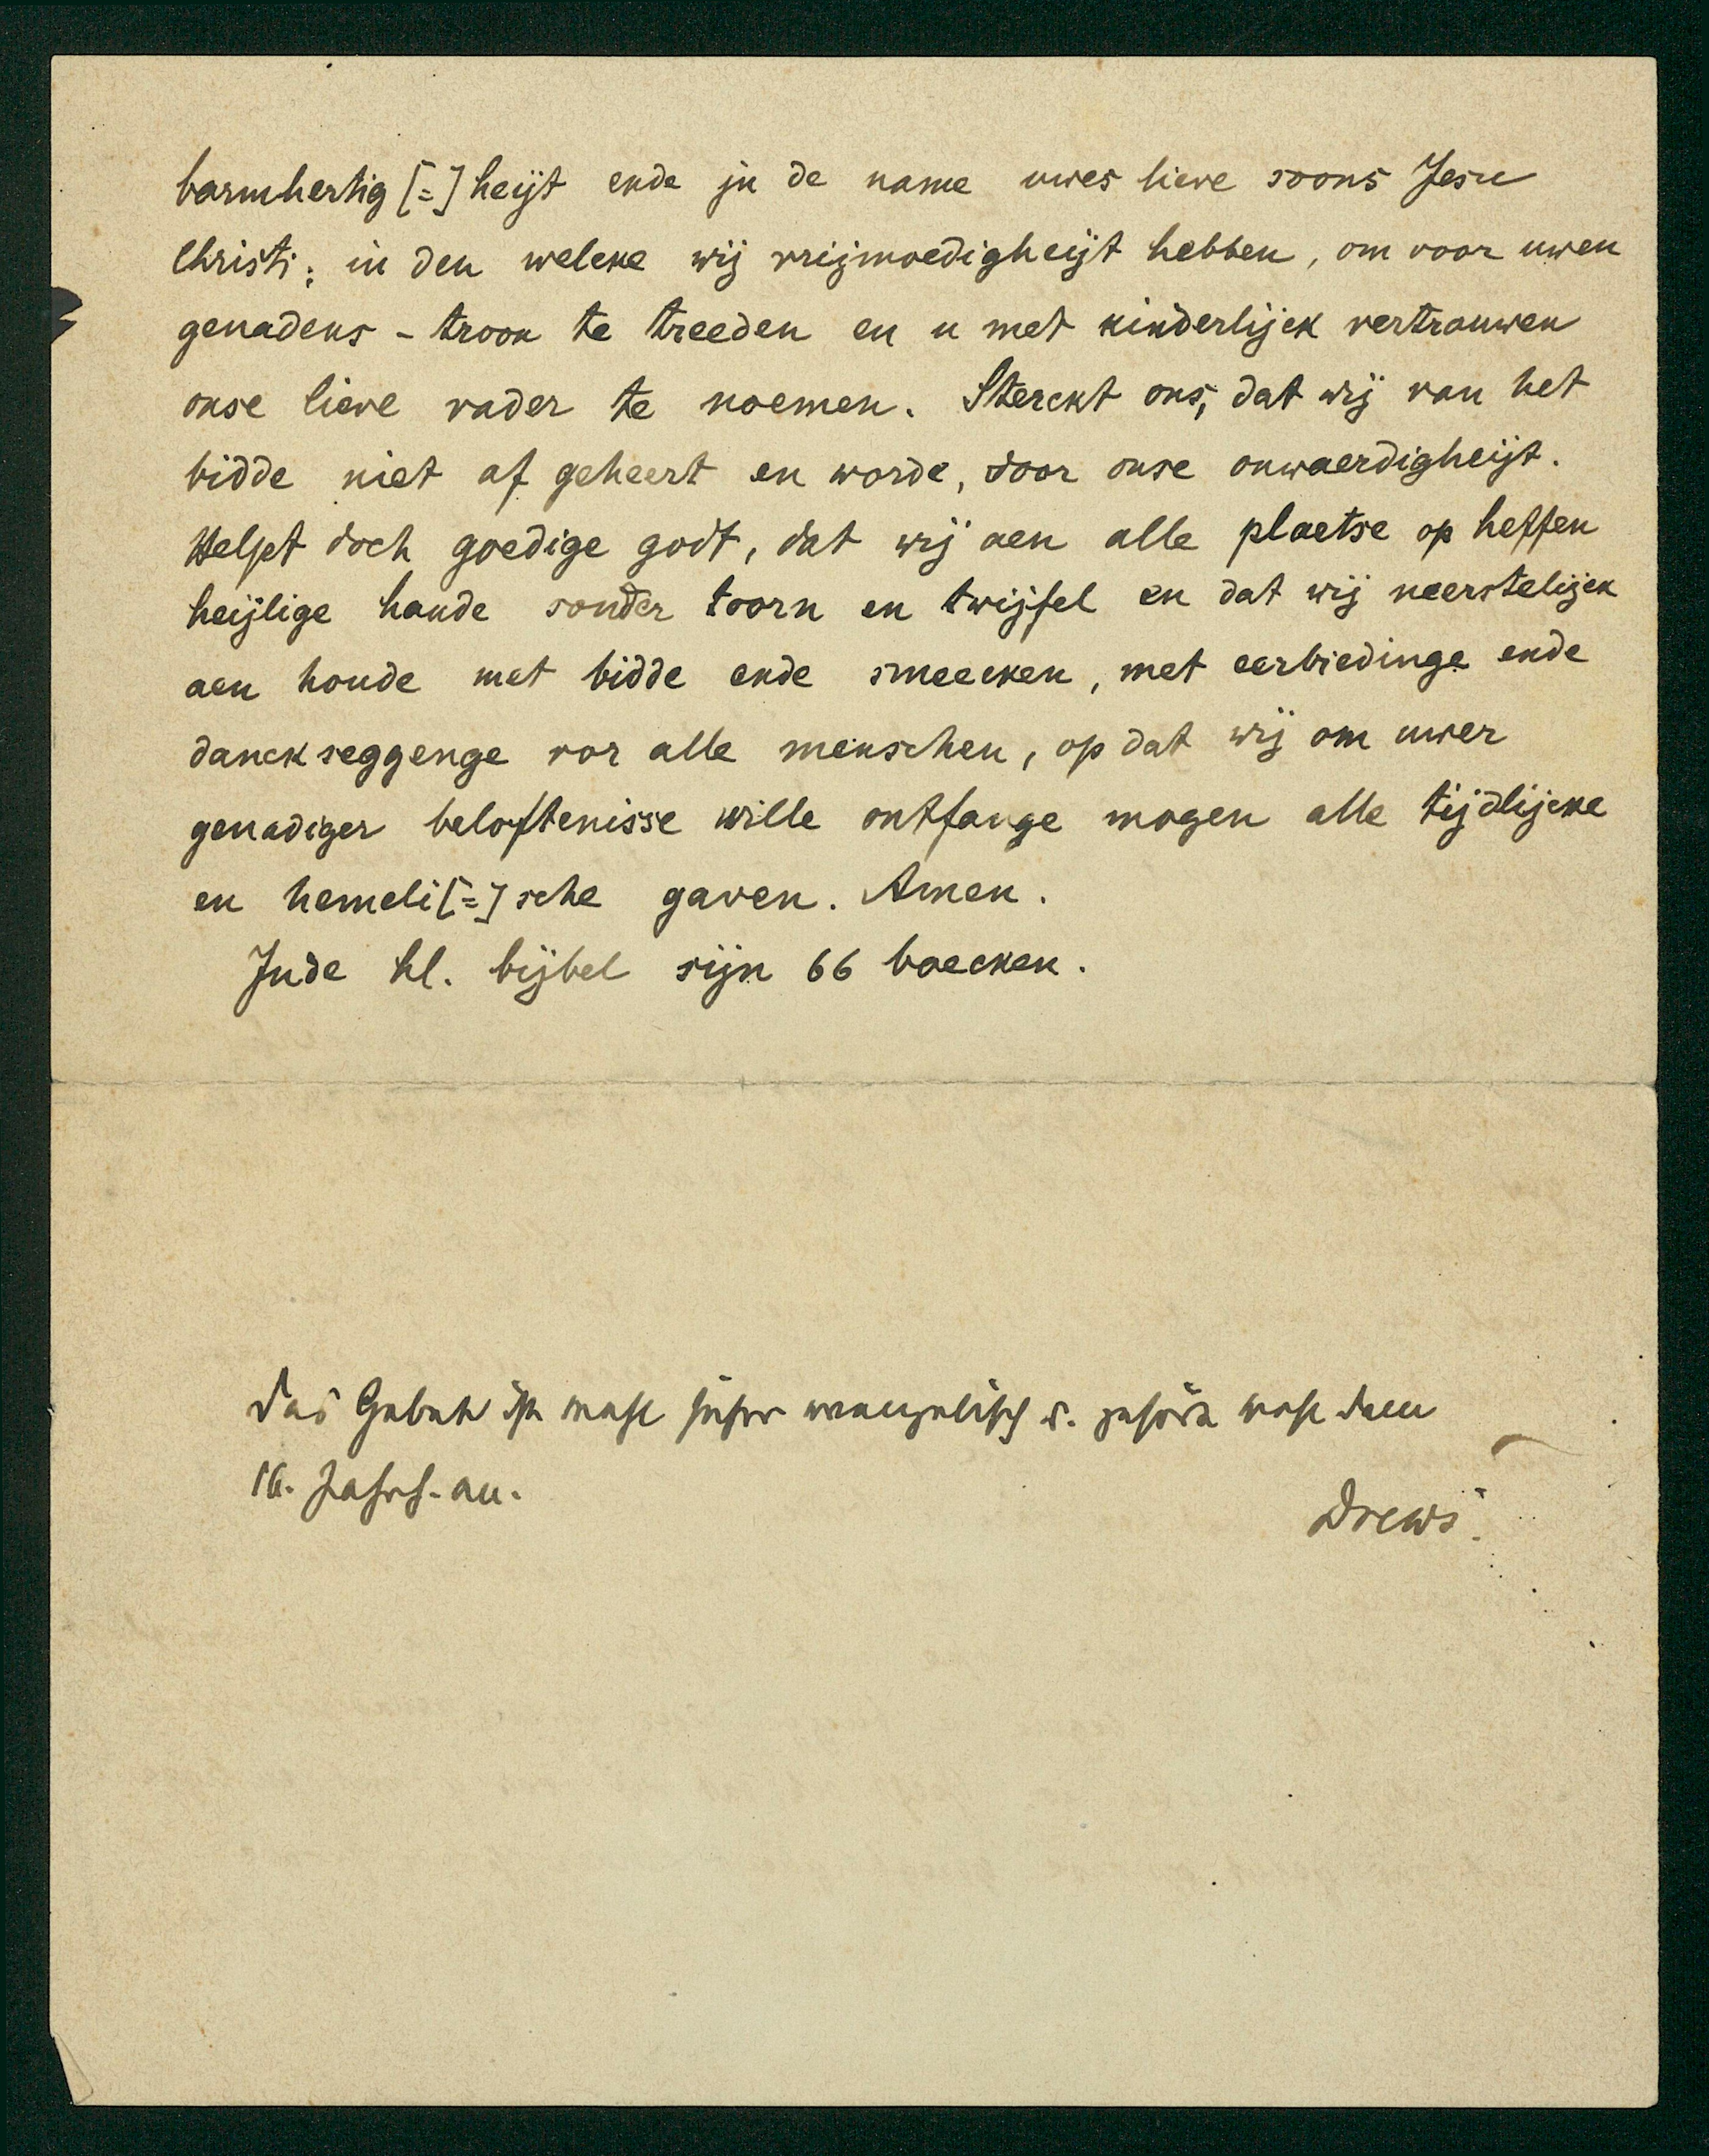 barmhertig [=] heijt ende jn de name uwes lieve soons Jesu
Christi; in den welcke wij vrijmoedigheijt hebben, om voor uwen
genadens - troon te treeden en u met kinderlijck vertrouwen
onse lieve vader te noemen. Sterckt ons, dat wij van het
bidde niet af geheert en worde, door onse onwaerdigheijt.
Helpt doch goedige godt, dat wij aen alle plaetse op heffen
heijlige hande sonder toorn en twijfel en dat wij neerstelijck
aen houde met bidde ende smeecken, met eerbiedinge ende
danck seggenge vor alle menschen, op dat wij om uwer
genadiger beloftenisse wille ontfange mogen alle tijdlijcke
en hemeli [=] sche gaven. Amen.
Jnde hl. bijbel sijn 66 boecken.
Das Gebet ist wohl sicher evangelisch u. gehört wohl dem
16. Jahrh. an.
Drews.